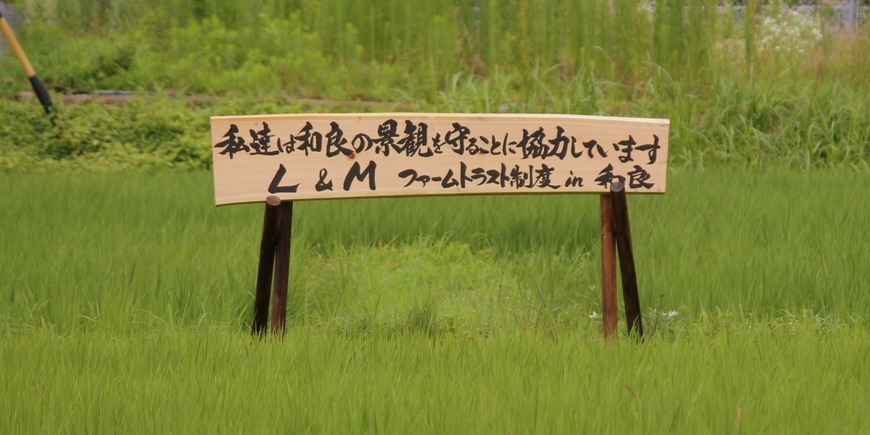 私達は和良の景観を守ることに協力しています
L & M ファームトラスト制度 in 和良